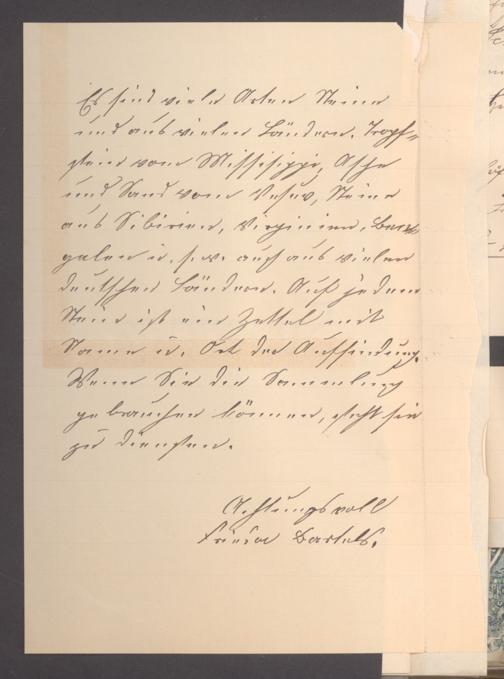 Es sind viele Arten Steine
und aus vielen Ländern. Tropf=
stein vom Mississippi, Asche
und Sand vom Vesuv, Steine
aus Sibirien, Virginien, Ben
galen u. s. w. auch aus vielen
deutschen Ländern. Auf jedem
Stein ist ein Zettel mit
Name u. Ort der Auffindung.
Wenn Sie die Sammlung
gebrauchen können, steht sie
zu Diensten.
Achtungsvoll
Bartels.